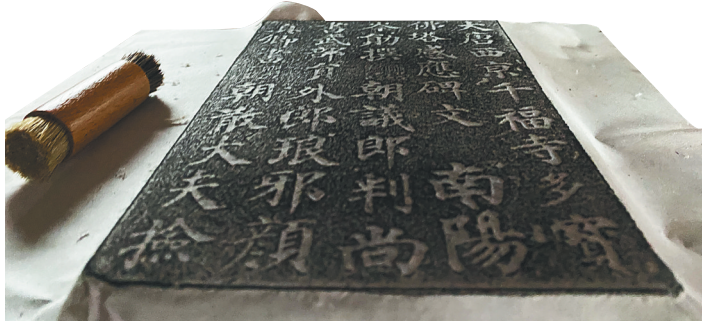 大唐西京千福寺多寶
佛塔感應碑文 南陽
岑勛撰 朝議郎判尚
書武部員外郎琅邪顏
真卿書 朝散大夫撿